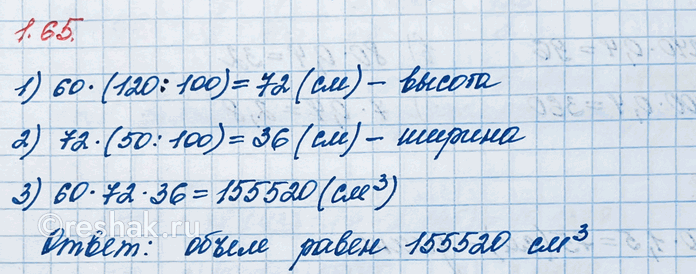 1.65.
1) 60·(120:100)=72(см) – высота
2) 72·(50:100)=36(см) – ширина
3) 60·72·36=155520(см³)
©reshak.ru
Ответ: объем равен 155520 см³